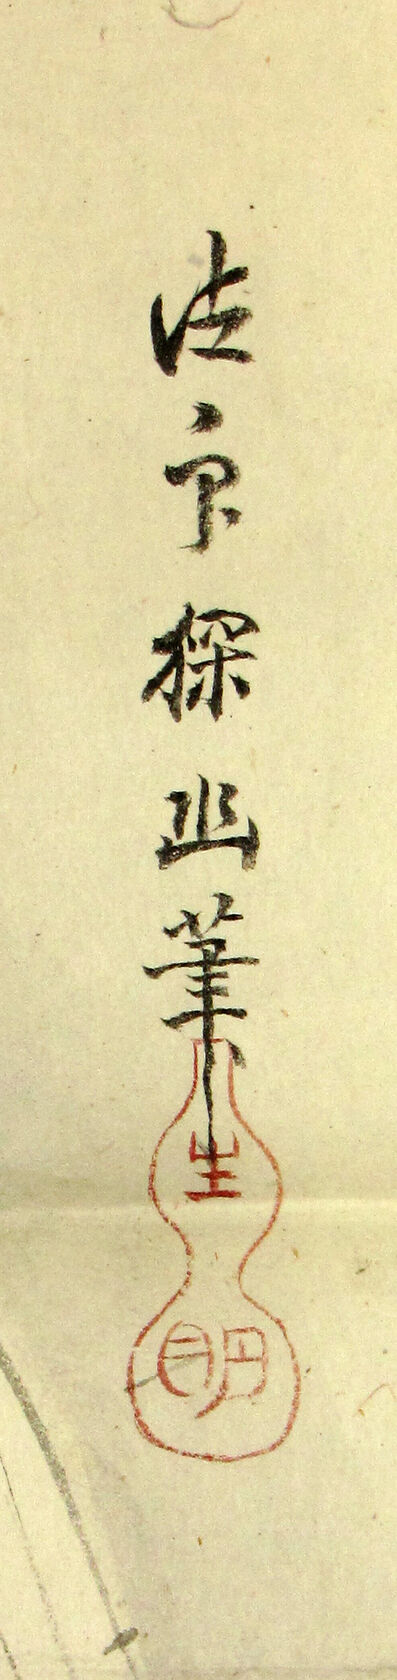 法印探幽筆
生
明